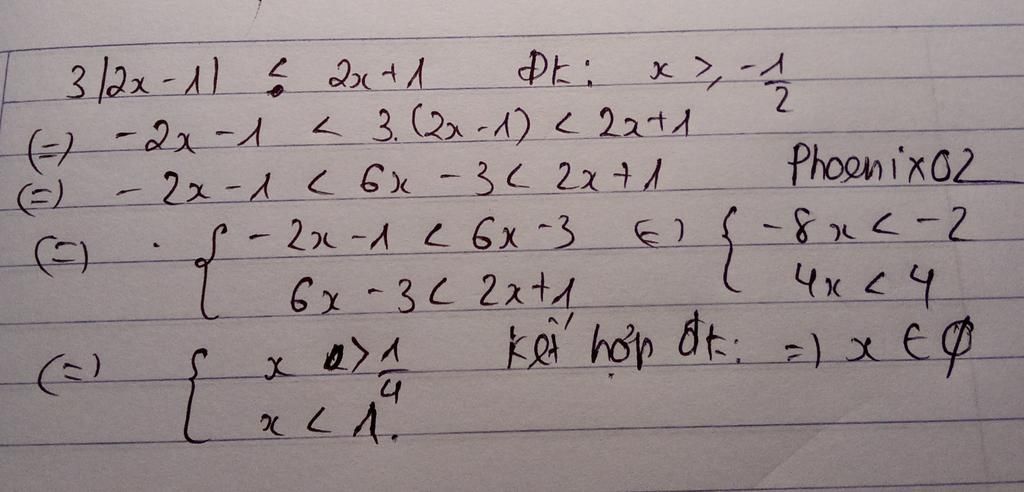 3|2x-1| ≤ 2x+1 Đk: x ≥ -1/2
(=) -2x-1 < 3.(2x-1) < 2x+1
(=) -2x-1 < 6x-3 < 2x+1 Phoenix02
(=) { -2x-1 < 6x-3 (=) { -8x < -2
6x-3 < 2x+1 4x < 4
(=) { x > 1/4 kết hợp đk: =) x ∈ ∅
x < 1.